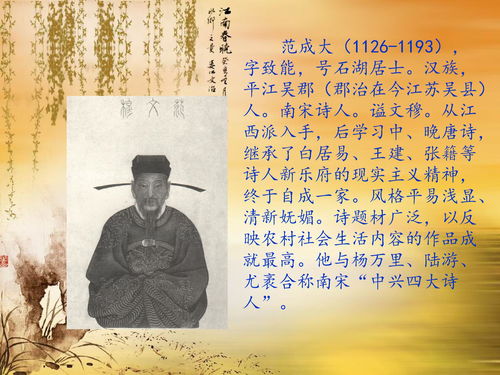 江南春晓
范成大（1126-1193），
字致能，号石湖居士。汉族，
平江吴郡（郡治在今江苏吴县）
人。南宋诗人。谥文穆。从江
西派入手，后学习中、晚唐诗，
继承了白居易、王建、张籍等
诗人新乐府的现实主义精神，
终于自成一家。风格平易浅显、
清新妩媚。诗题材广泛，以反
映农村社会生活内容的作品成
就最高。他与杨万里、陆游、
尤袤合称南宋“中兴四大诗
人”。
穆文范